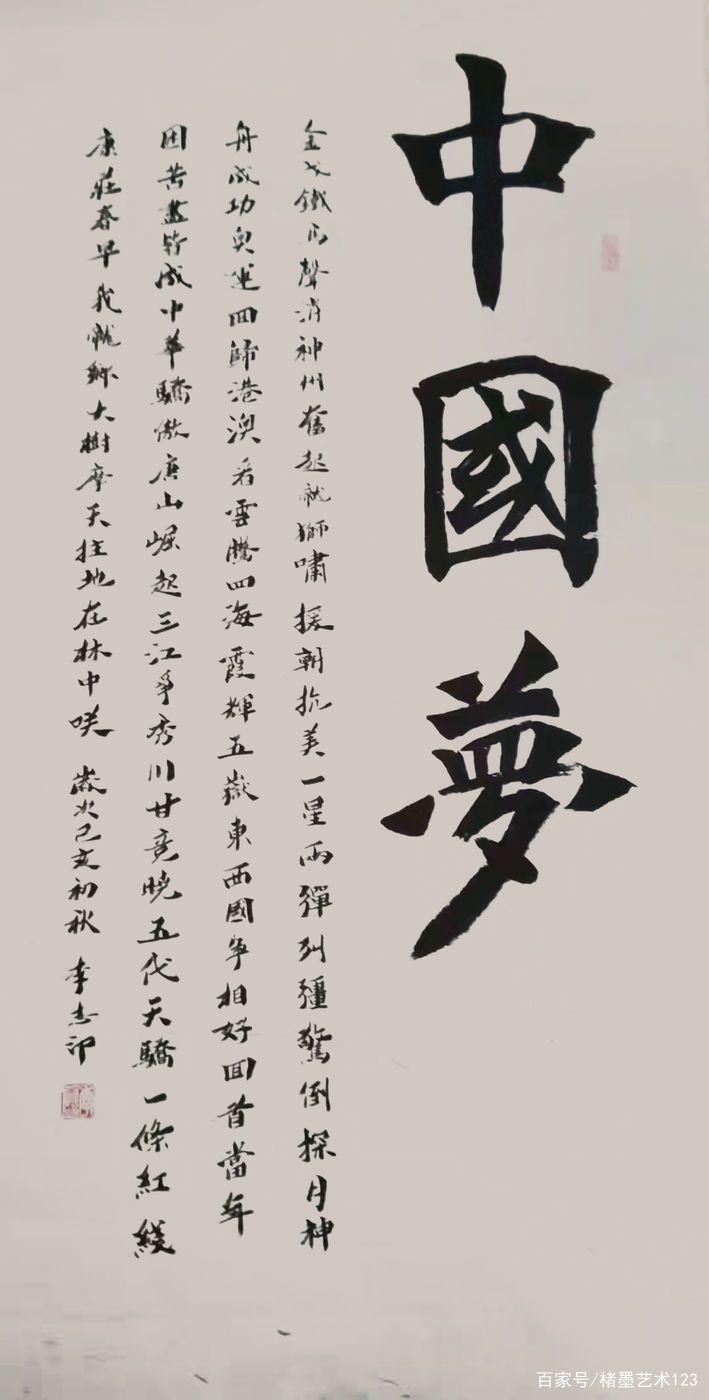 中國夢
金戈鐵馬聲消神州奮起龍獅嘯援朝抗美一星兩彈列疆驚倒探月神
舟成功奥運回歸港澳看雲騰四海霞輝五嶽東西國爭相好回首當年
困苦盡皆成中華驕傲唐山崛起三江爭秀川甘竞曉五代天驕一條紅綫
康莊春早我龍鄉大樹摩天拄地在林中咲 歲次己亥初秋 李志印
百家号/楮墨艺术123